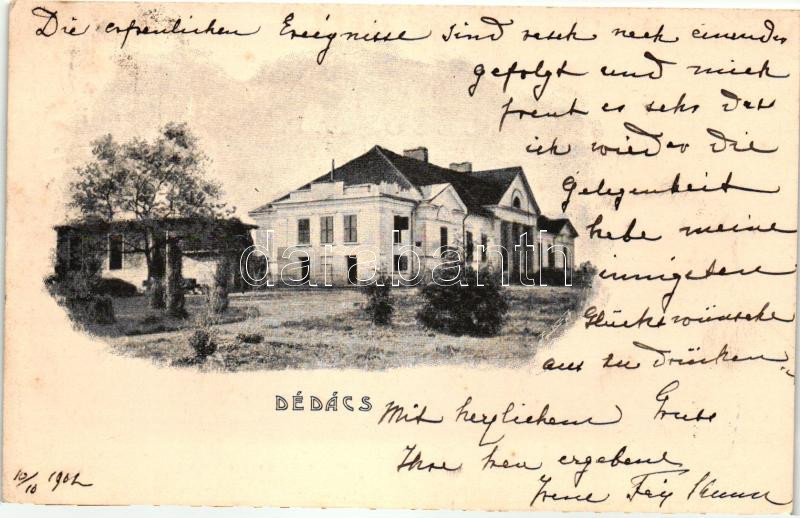 Die erfreulichen Ereignisse sind rasch nach einander
gefolgt und mich
freut es sehr das
ich wieder die
Gelegenheit
habe meine
innigsten
Glückswünsche
aus zu drücken
darabanth
DÉDÁCS
Mit herzlichem Gruss
Ihre treu ergebene
Irene Fáy
10/10 1902